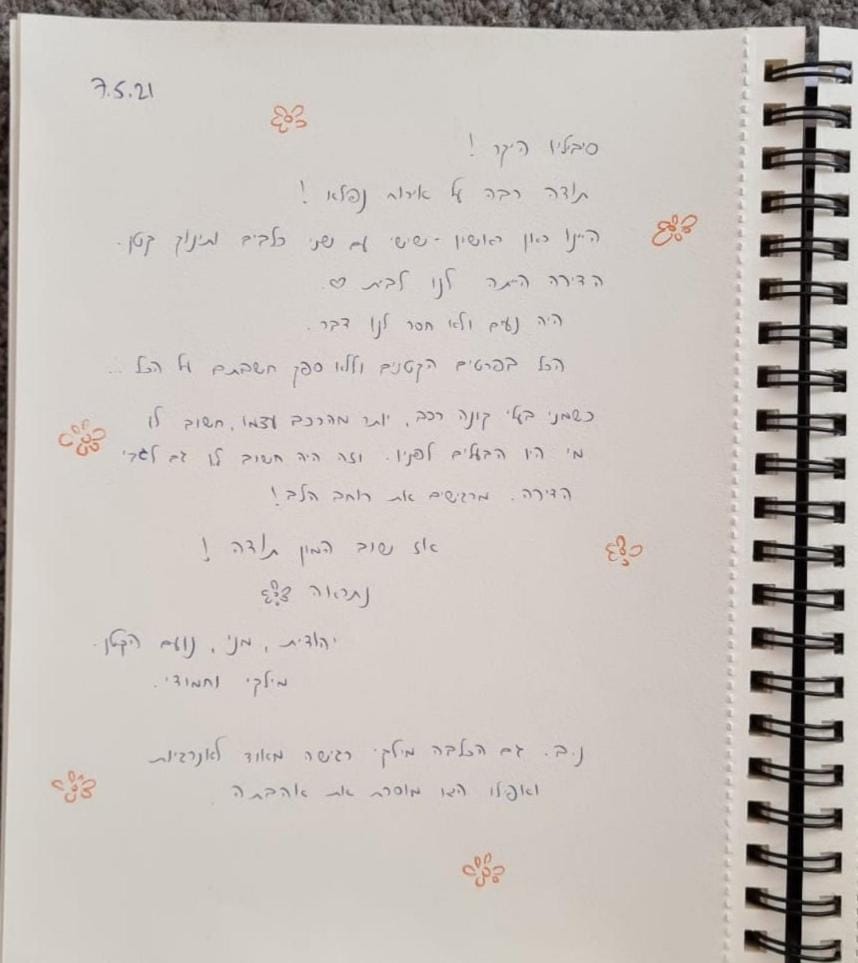 7.5.21
סיביליו היקר !
תודה רבה על אירוח נפלא !
היינו כאן ראשון - שישי עם שני כלבים ותינוק קטן.
הדירה הייתה לנו לבית ♡.
היה נעים ולא חסר לנו דבר.
הכל בפרטים הקטנים וללא ספק חשבתם על הכל ...
כשמני בעלי קונה רכב, יותר מהרכב עצמו, חשוב לו
מי היו הבעלים לפניו. וזה היה חשוב לו גם לגבי
הדירה. מרגישים את רוחב הלב!
אז שוב המון תודה !
נתראה
יהודית, מני, נועם הקטן.
מילקי וחמודי.
נ.ב. גם הכלבה מילקי רגישה מאוד לאנרגיות
ואפילו היא מוסרת את אהבתה